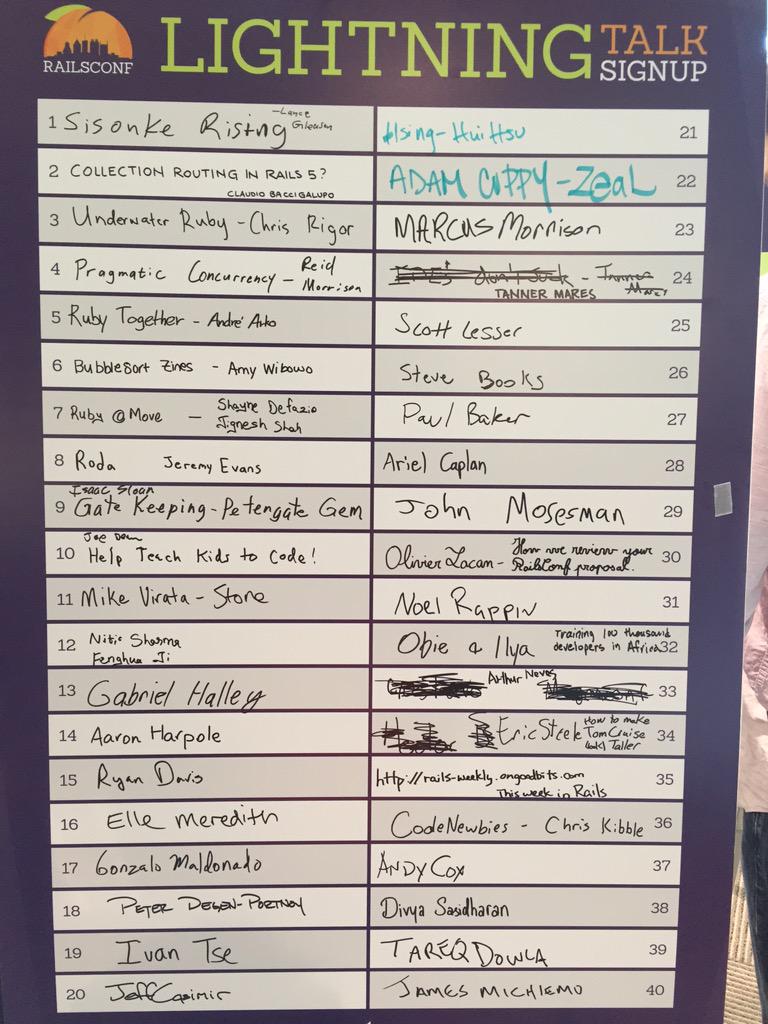 RAILSCONF
LIGHTNING TALK SIGNUP
1 Sisonke Rising - Lance Gleason
2 COLLECTION ROUTING IN RAILS 5?
CLAUDIO BACCIGALUPO
3 Underwater Ruby - Chris Rigor
4 Pragmatic Concurrency - Reid Morrison
5 Ruby Together - André Arko
6 BubbleSort Zines - Amy Wibowo
7 Ruby @ Move - Shayne Defazio
Jignesh Shah
8 Roda Jeremy Evans
Isaac Sloan
9 Gate Keeping - Petergate Gem
Joe Dean
10 Help Teach Kids to Code!
11 Mike Virata - Stone
12 Nitie Sharma
Fenghua Ji
13 Gabriel Halley
14 Aaron Harpole
15 Ryan Davis
16 Elle Meredith
17 Gonzalo Maldonado
18 PETER DEGEN-PORTNOY
19 Ivan Tse
20 Jeff Casimir
Hsing-Hui Hsu 21
ADAM CUPPY - ZEAL 22
MARCUS Morrison 23
- Tanner Mares 24
TANNER MARES
Scott Lesser 25
Steve Books 26
Paul Baker 27
Ariel Caplan 28
John Mosesman 29
Olivier Lacan - How we review your RailsConf proposal. 30
Noel Rappin 31
Obie & Ilya Training 100 thousand developers in Africa 32
Arthur Neves 33
Eric Steele How to make Tom Cruise Taller 34
http://rails-weekly.ongoodbits.com 35
This week in Rails
CodeNewbies - Chris Kibble 36
ANDY COX 37
Divya Sasidharan 38
TAREQ DOWLA 39
JAMES MICHIEMO 40